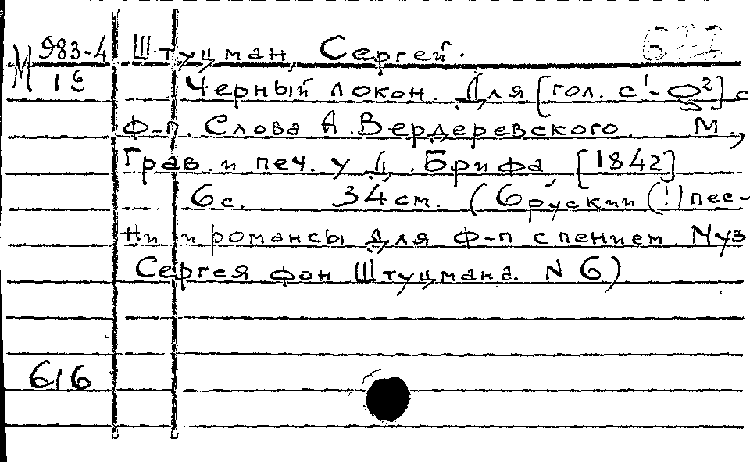 М 983-4 Штуцман, Сергей. 672
16 Черный локон. Для [гол. c¹-g²] с
ф-п. Слова А. Вердеревского. М.,
Грав. и печ. у Д. Брифа [1842]
6 с. 34 см. (6 руских (!) пес-
ни и романсы для ф-п с пением Муз
Сергея фон Штуцмана. N 6)
616